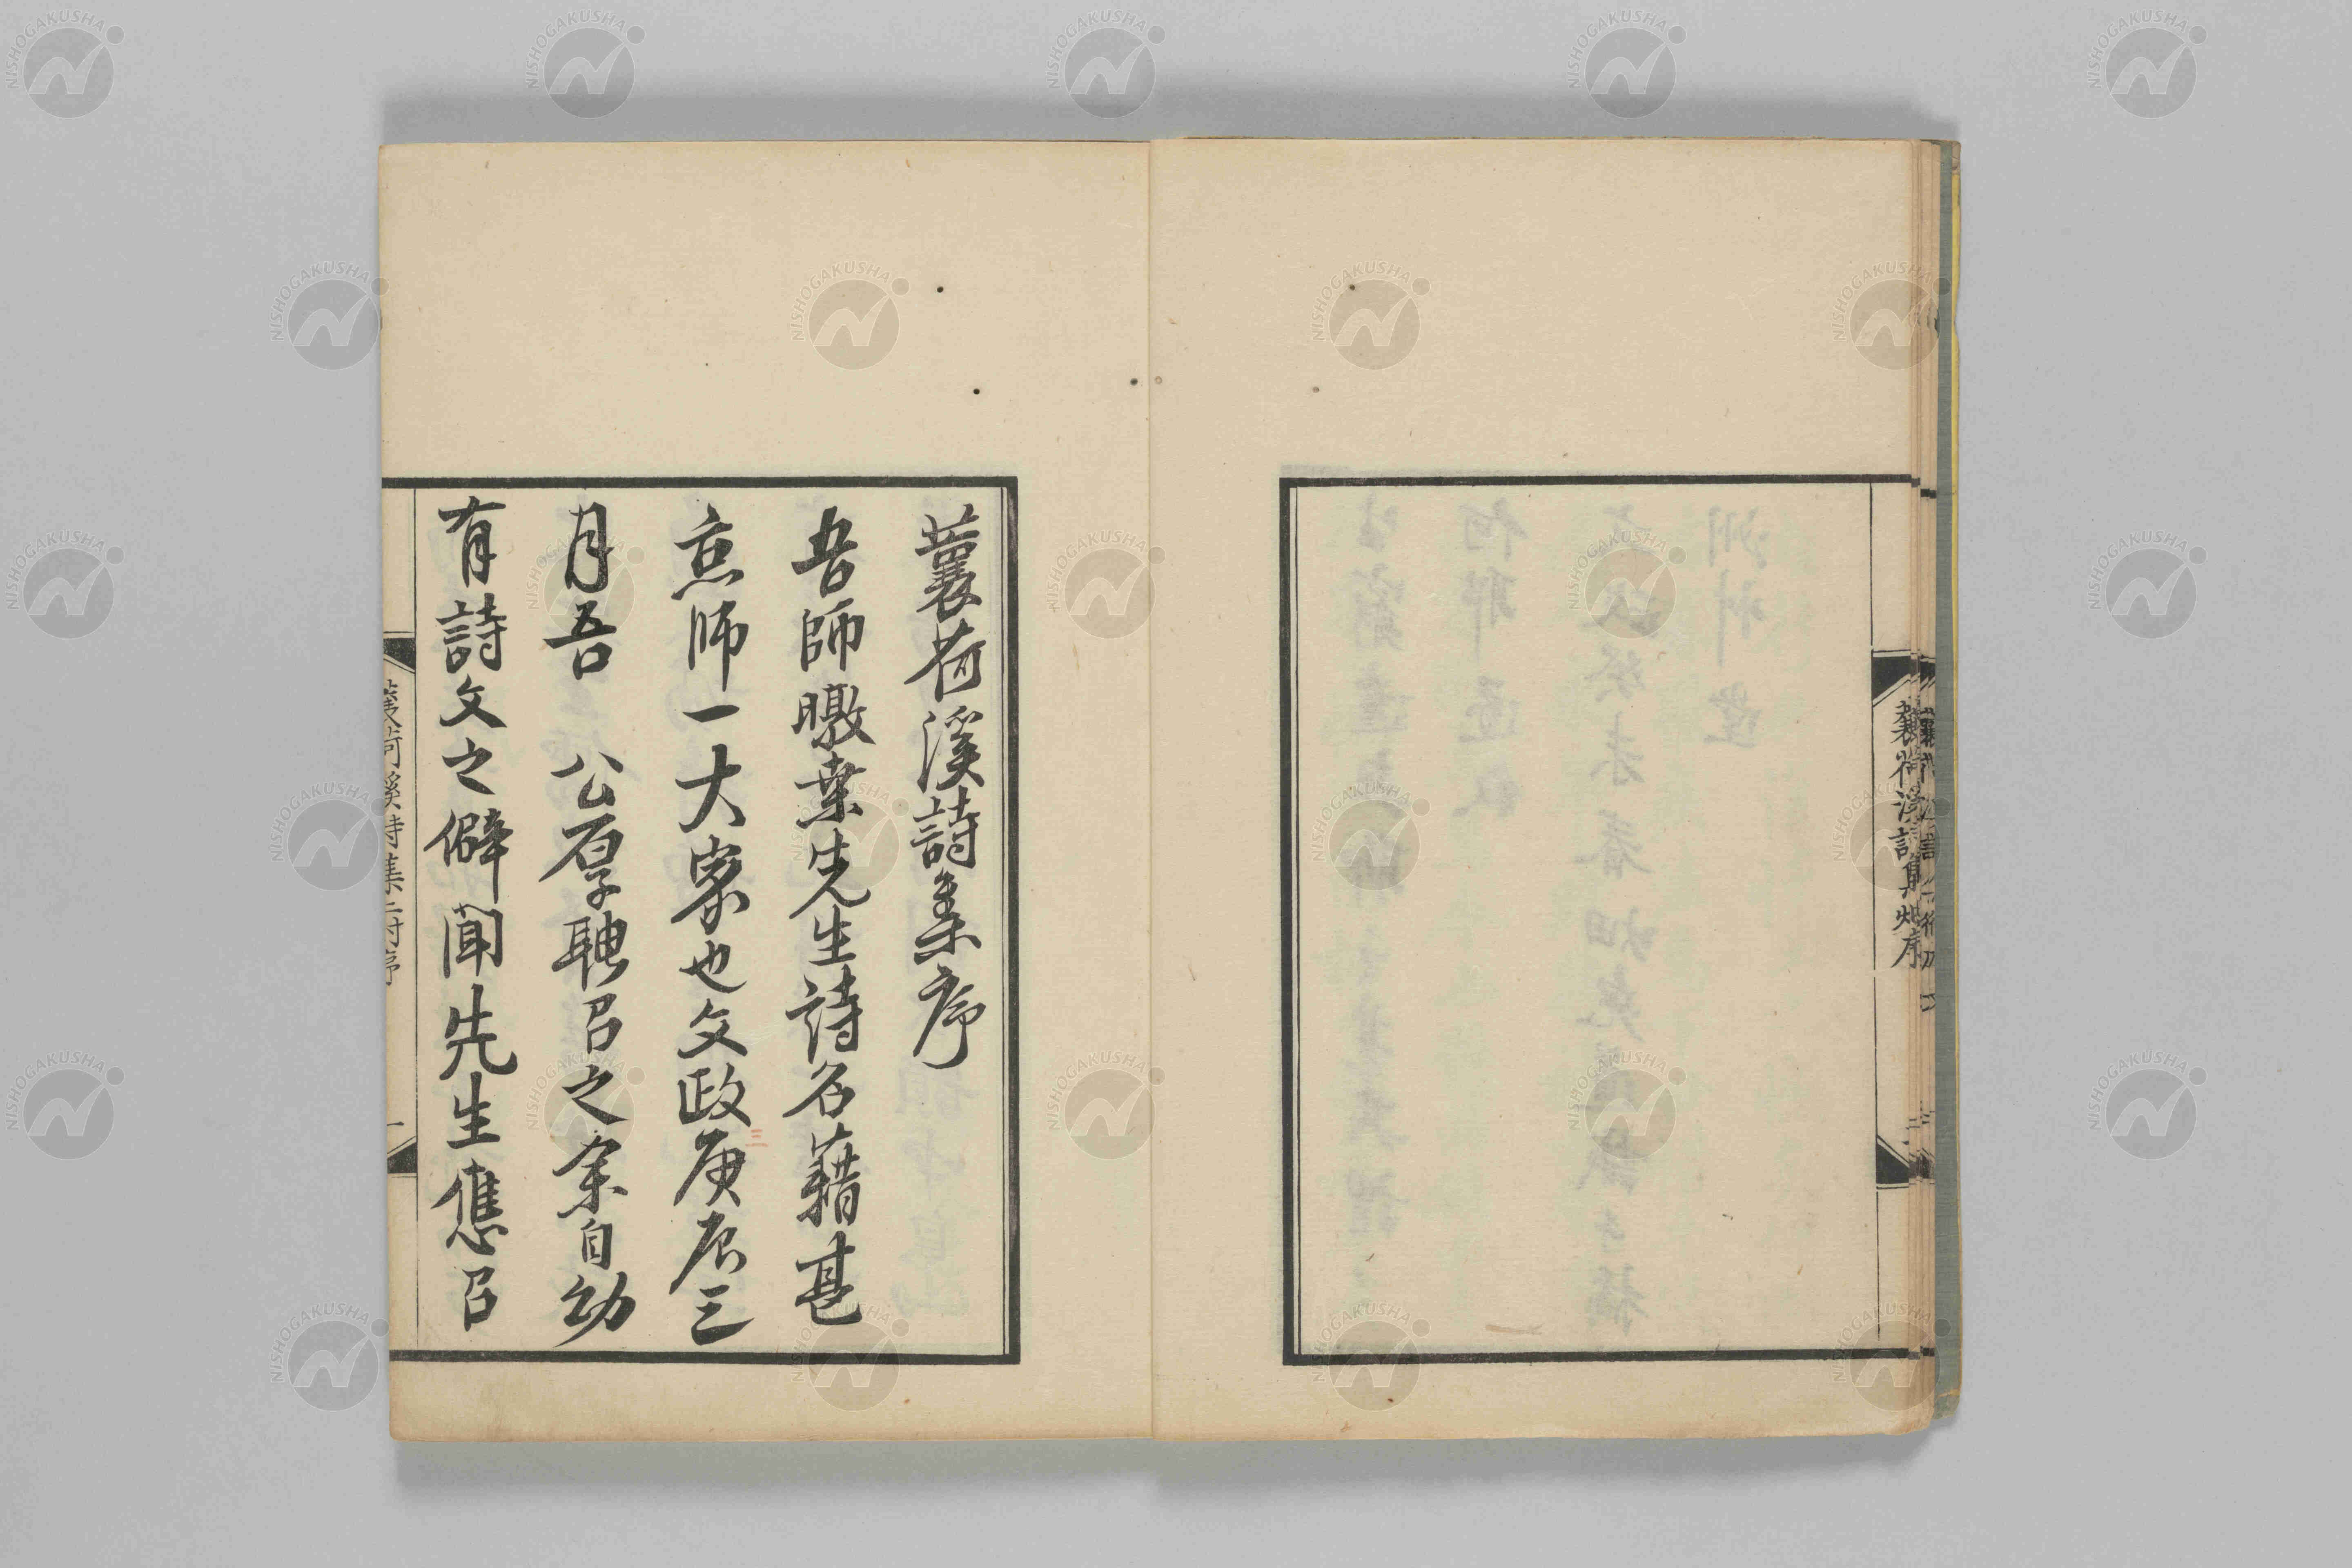 蘘荷溪詩集序
吾師暾桒先生詩名藉甚
京師一大家也文政庚辰三
月吾 公厚聘召之余自幼
有詩文之僻聞先生應召
蘘荷溪詩集
一
蘘荷溪詩集 序
NISHOGAKUSHA